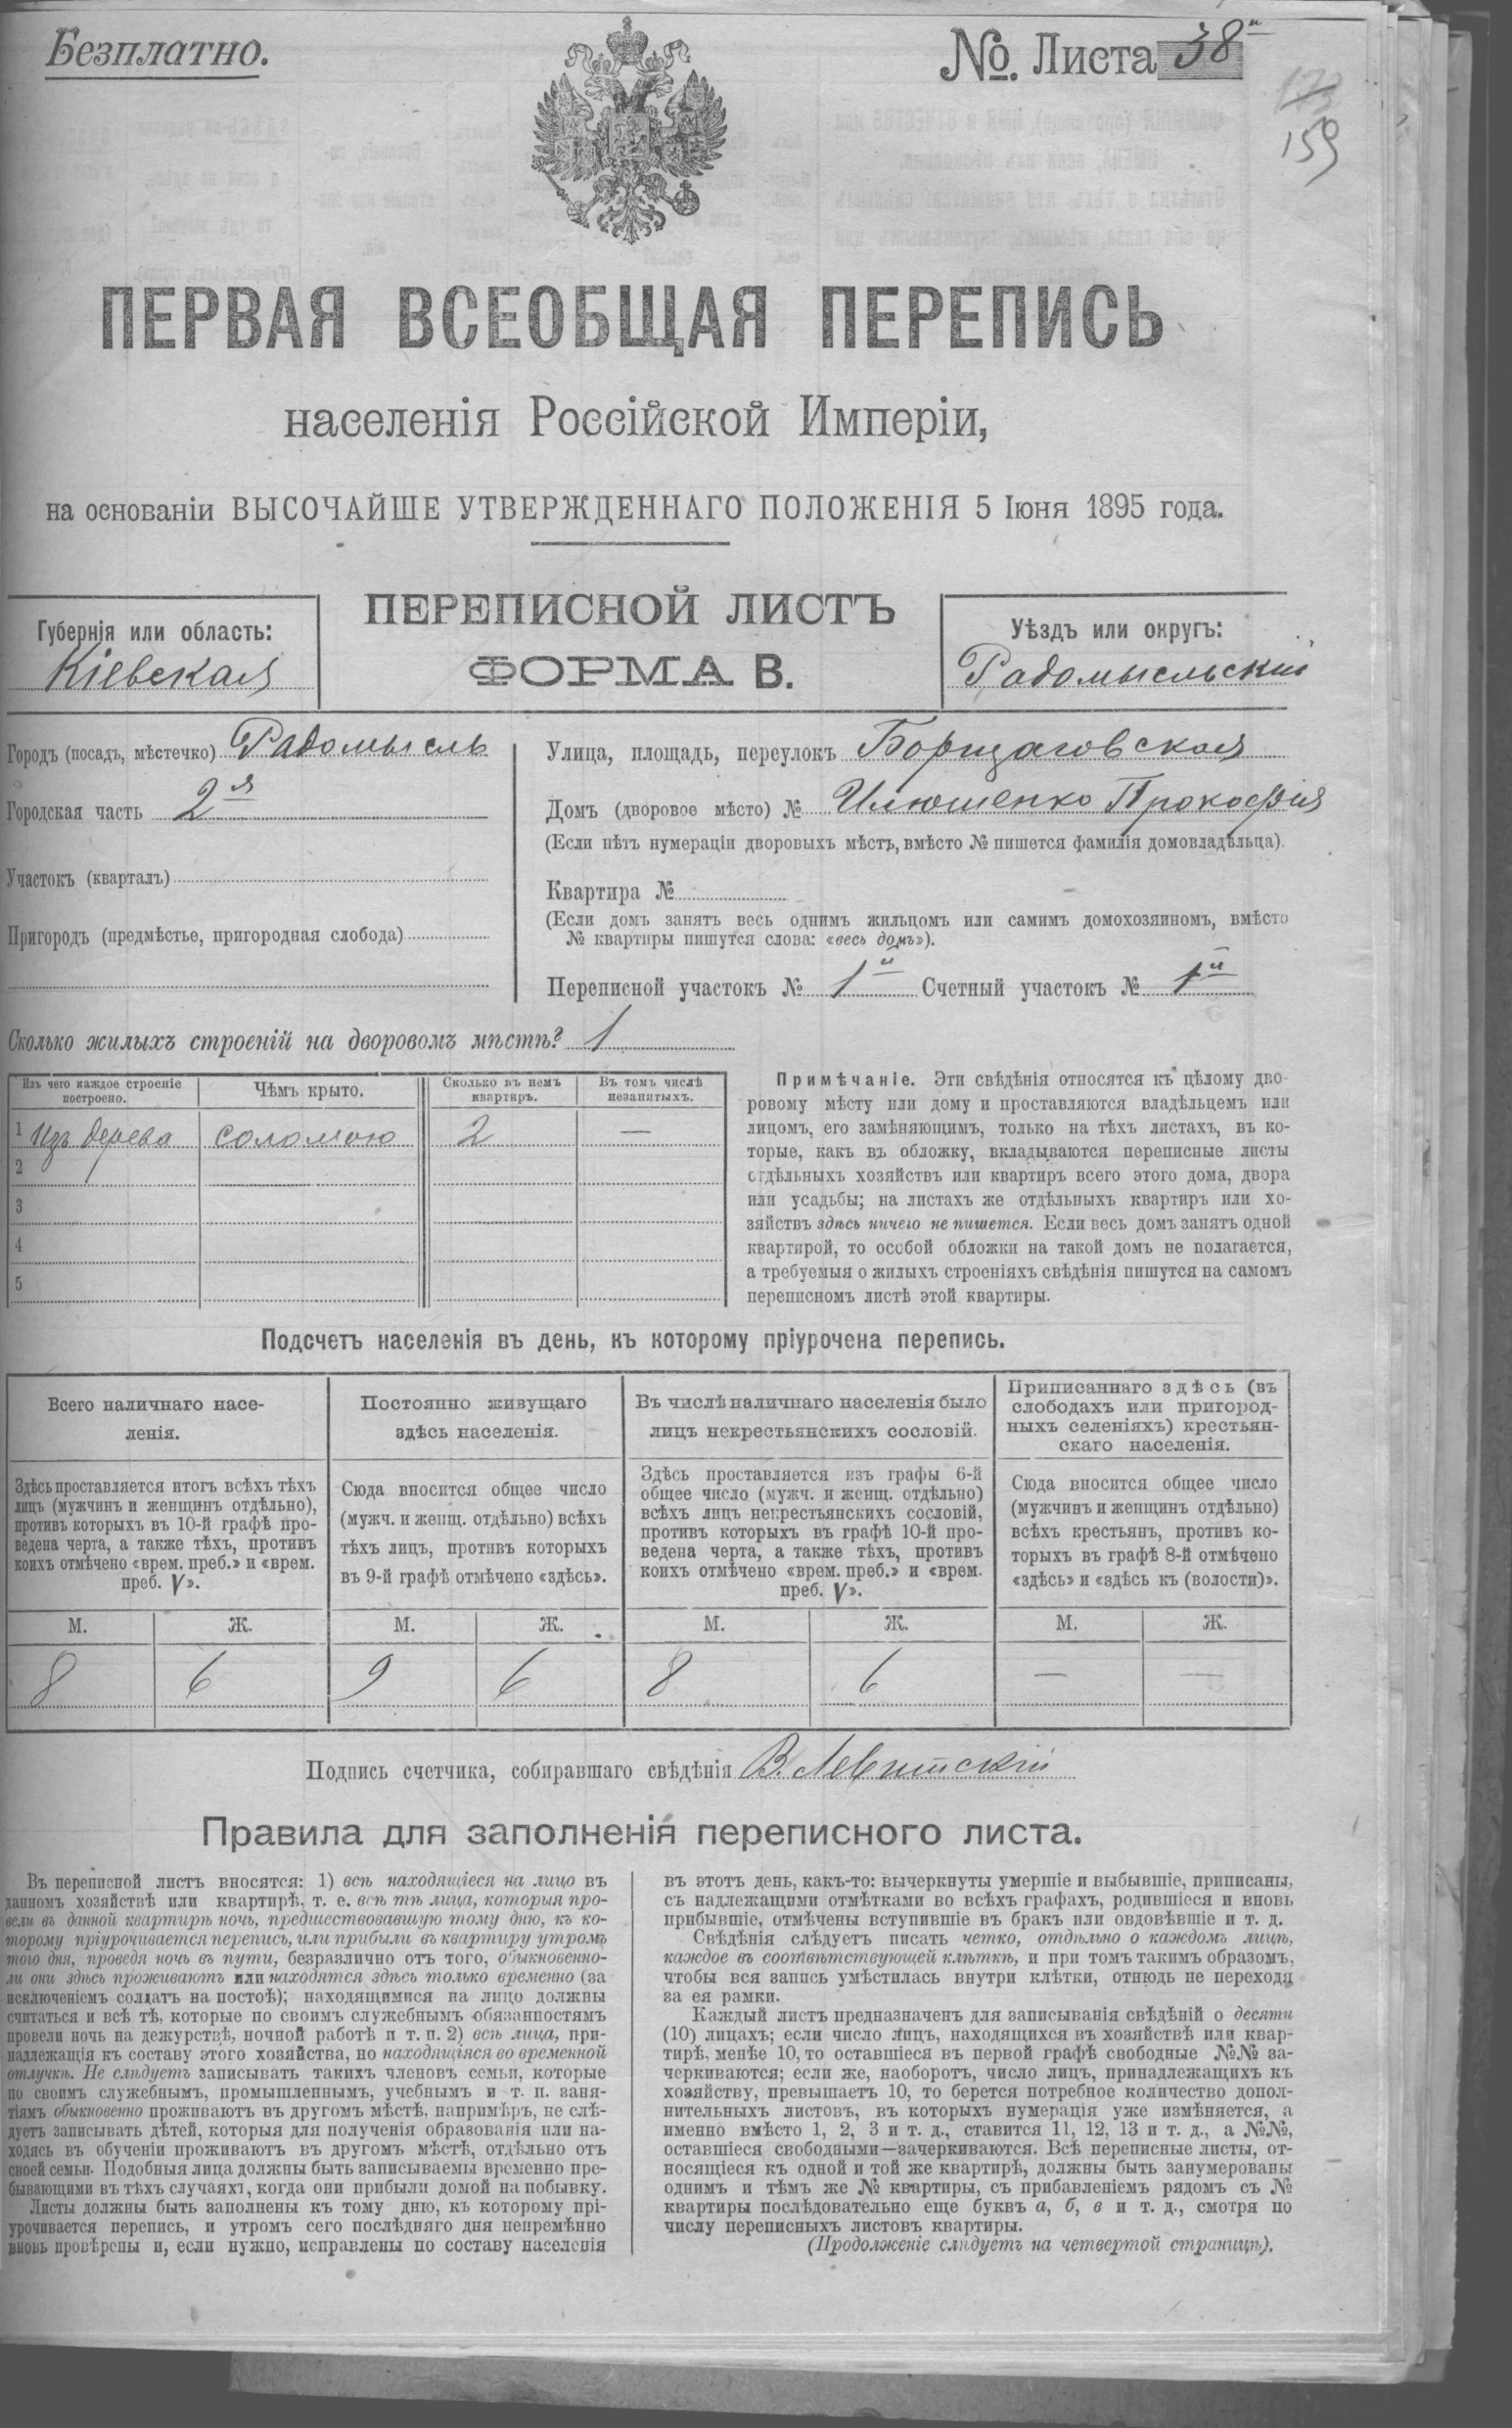 Безплатно.
№. Листа 38й
159
ПЕРВАЯ ВСЕОБЩАЯ ПЕРЕПИСЬ
населенія Россійской Имперіи,
на основаніи ВЫСОЧАЙШЕ УТВЕРЖДЕННАГО ПОЛОЖЕНІЯ 5 Іюня 1895 года.
ПЕРЕПИСНОЙ ЛИСТЪ
ФОРМА В.
Губернія или область:
Кіевская
Уѣздъ или округъ:
Радомысльскій
Городъ (посадъ, мѣстечко) Радомысль
Городская часть 2я
Участокъ (кварталъ)
Пригородъ (предмѣстье, пригородная слобода)
Улица, площадь, переулокъ Борщаговская
Домъ (дворовое мѣсто) № Илюшенко Прокофія
(Если нѣтъ нумераціи дворовыхъ мѣстъ, вмѣсто № пишется фамилія домовладѣльца).
Квартира №
(Если домъ занятъ весь однимъ жильцомъ или самимъ домохозяиномъ, вмѣсто
№ квартиры пишутся слова: «весь домъ»).
Переписной участокъ № 1й Счетный участокъ № 1й
Сколько жилыхъ строеній на дворовомъ мѣстѣ? 1
Изъ чего каждое строеніе
построено.
Чѣмъ крыто.
Сколько въ немъ
квартиръ.
Въ томъ числѣ
незанятыхъ.
1 Изъ дерева соломою 2 —
2
3
4
5
Примѣчаніе. Эти свѣдѣнія относятся къ цѣлому дво-
ровому мѣсту или дому и проставляются владѣльцемъ или
лицомъ, его замѣняющимъ, только на тѣхъ листахъ, въ ко-
торые, какъ въ обложку, вкладываются переписные листы
отдѣльныхъ хозяйствъ или квартиръ всего этого дома, двора
или усадьбы; на листахъ же отдѣльныхъ квартиръ или хо-
зяйствъ здѣсь ничего не пишется. Если весь домъ занятъ одной
квартирой, то особой обложки на такой домъ не полагается,
а требуемыя о жилыхъ строеніяхъ свѣдѣнія пишутся на самомъ
переписномъ листѣ этой квартиры.
Подсчетъ населенія въ день, къ которому пріурочена перепись.
Всего наличнаго насе-
ленія.
Здѣсь проставляется итогъ всѣхъ тѣхъ
лицъ (мужчинъ и женщинъ отдѣльно),
противъ которыхъ въ 10-й графѣ про-
ведена черта, а также тѣхъ, противъ
коихъ отмѣчено «врем. преб.» и «врем.
преб. V».
Постоянно живущаго
здѣсь населенія.
Сюда вносится общее число
(мужч. и женщ. отдѣльно) всѣхъ
тѣхъ лицъ, противъ которыхъ
въ 9-й графѣ отмѣчено «здѣсь».
Въ числѣ наличнаго населенія было
лицъ некрестьянскихъ сословій.
Здѣсь проставляется изъ графы 6-й
общее число (мужч. и женщ. отдѣльно)
всѣхъ лицъ некрестьянскихъ сословій,
противъ которыхъ въ графѣ 10-й про-
ведена черта, а также тѣхъ, противъ
коихъ отмѣчено «врем. преб.» и «врем.
преб. V».
Приписаннаго здѣсь (въ
слободахъ или пригород-
ныхъ селеніяхъ) крестьян-
скаго населенія.
Сюда вносится общее число
(мужчинъ и женщинъ отдѣльно)
всѣхъ крестьянъ, противъ ко-
торыхъ въ графѣ 8-й отмѣчено
«здѣсь» и «здѣсь къ (волости)».
М. Ж. М. Ж. М. Ж. М. Ж.
8 6 9 6 8 6 — —
Подпись счетчика, собиравшаго свѣдѣнія В. Левитскій
Правила для заполненія переписного листа.
Въ переписной листъ вносятся: 1) всѣ находящіеся на лицо въ
данномъ хозяйствѣ или квартирѣ, т. е. всѣ тѣ лица, которыя про-
вели въ данной квартирѣ ночь, предшествовавшую тому дню, къ ко-
торому пріурочивается перепись, или прибыли въ квартиру утромъ
того дня, проведя ночь въ пути, безразлично отъ того, обыкновенно-
ли они здѣсь проживаютъ или находятся здѣсь только временно (за
исключеніемъ солдатъ на постоѣ); находящимися на лицо должны
считаться и всѣ тѣ, которые по своимъ служебнымъ обязанностямъ
провели ночь на дежурствѣ, ночной работѣ и т. п. 2) всѣ лица, при-
надлежащія къ составу этого хозяйства, но находящіяся во временной
отлучкѣ. Не слѣдуетъ записывать такихъ членовъ семьи, которые
по своимъ служебнымъ, промышленнымъ, учебнымъ и т. п. заня-
тіямъ обыкновенно проживаютъ въ другомъ мѣстѣ, напримѣръ, не слѣ-
дуетъ записывать дѣтей, которыя для полученія образованія или на-
ходясь въ обученіи проживаютъ въ другомъ мѣстѣ, отдѣльно отъ
своей семьи. Подобныя лица должны быть записываемы временно пре-
бывающими въ тѣхъ случаяхъ, когда они прибыли домой на побывку.
Листы должны быть заполнены къ тому дню, къ которому прі-
урочивается перепись, и утромъ сего послѣдняго дня непремѣнно
вновь провѣрены и, если нужно, исправлены по составу населенія
въ этотъ день, какъ-то: вычеркнуты умершіе и выбывшіе, приписаны,
съ надлежащими отмѣтками во всѣхъ графахъ, родившіеся и вновь
прибывшіе, отмѣчены вступившіе въ бракъ или овдовѣвшіе и т. д.
Свѣдѣнія слѣдуетъ писать четко, отдѣльно о каждомъ лицѣ,
каждое въ соотвѣтствующей клѣткѣ, и при томъ такимъ образомъ,
чтобы вся запись умѣстилась внутри клѣтки, отнюдь не переходя
за ея рамки.
Каждый листъ предназначенъ для записыванія свѣдѣній о десяти
(10) лицахъ; если число лицъ, находящихся въ хозяйствѣ или квар-
тирѣ, менѣе 10, то оставшіеся въ первой графѣ свободные №№ за-
черкиваются; если же, наоборотъ, число лицъ, принадлежащихъ къ
хозяйству, превышаетъ 10, то берется потребное количество допол-
нительныхъ листовъ, въ которыхъ нумерація уже измѣняется, а
именно вмѣсто 1, 2, 3 и т. д., ставится 11, 12, 13 и т. д., а №№,
оставшіеся свободными—зачеркиваются. Всѣ переписные листы, от-
носящіеся къ одной и той же квартирѣ, должны быть занумерованы
однимъ и тѣмъ же № квартиры, съ прибавленіемъ рядомъ съ №
квартиры послѣдовательно еще буквъ а, б, в и т. д., смотря по
числу переписныхъ листовъ квартиры.
(Продолженіе слѣдуетъ на четвертой страницѣ).